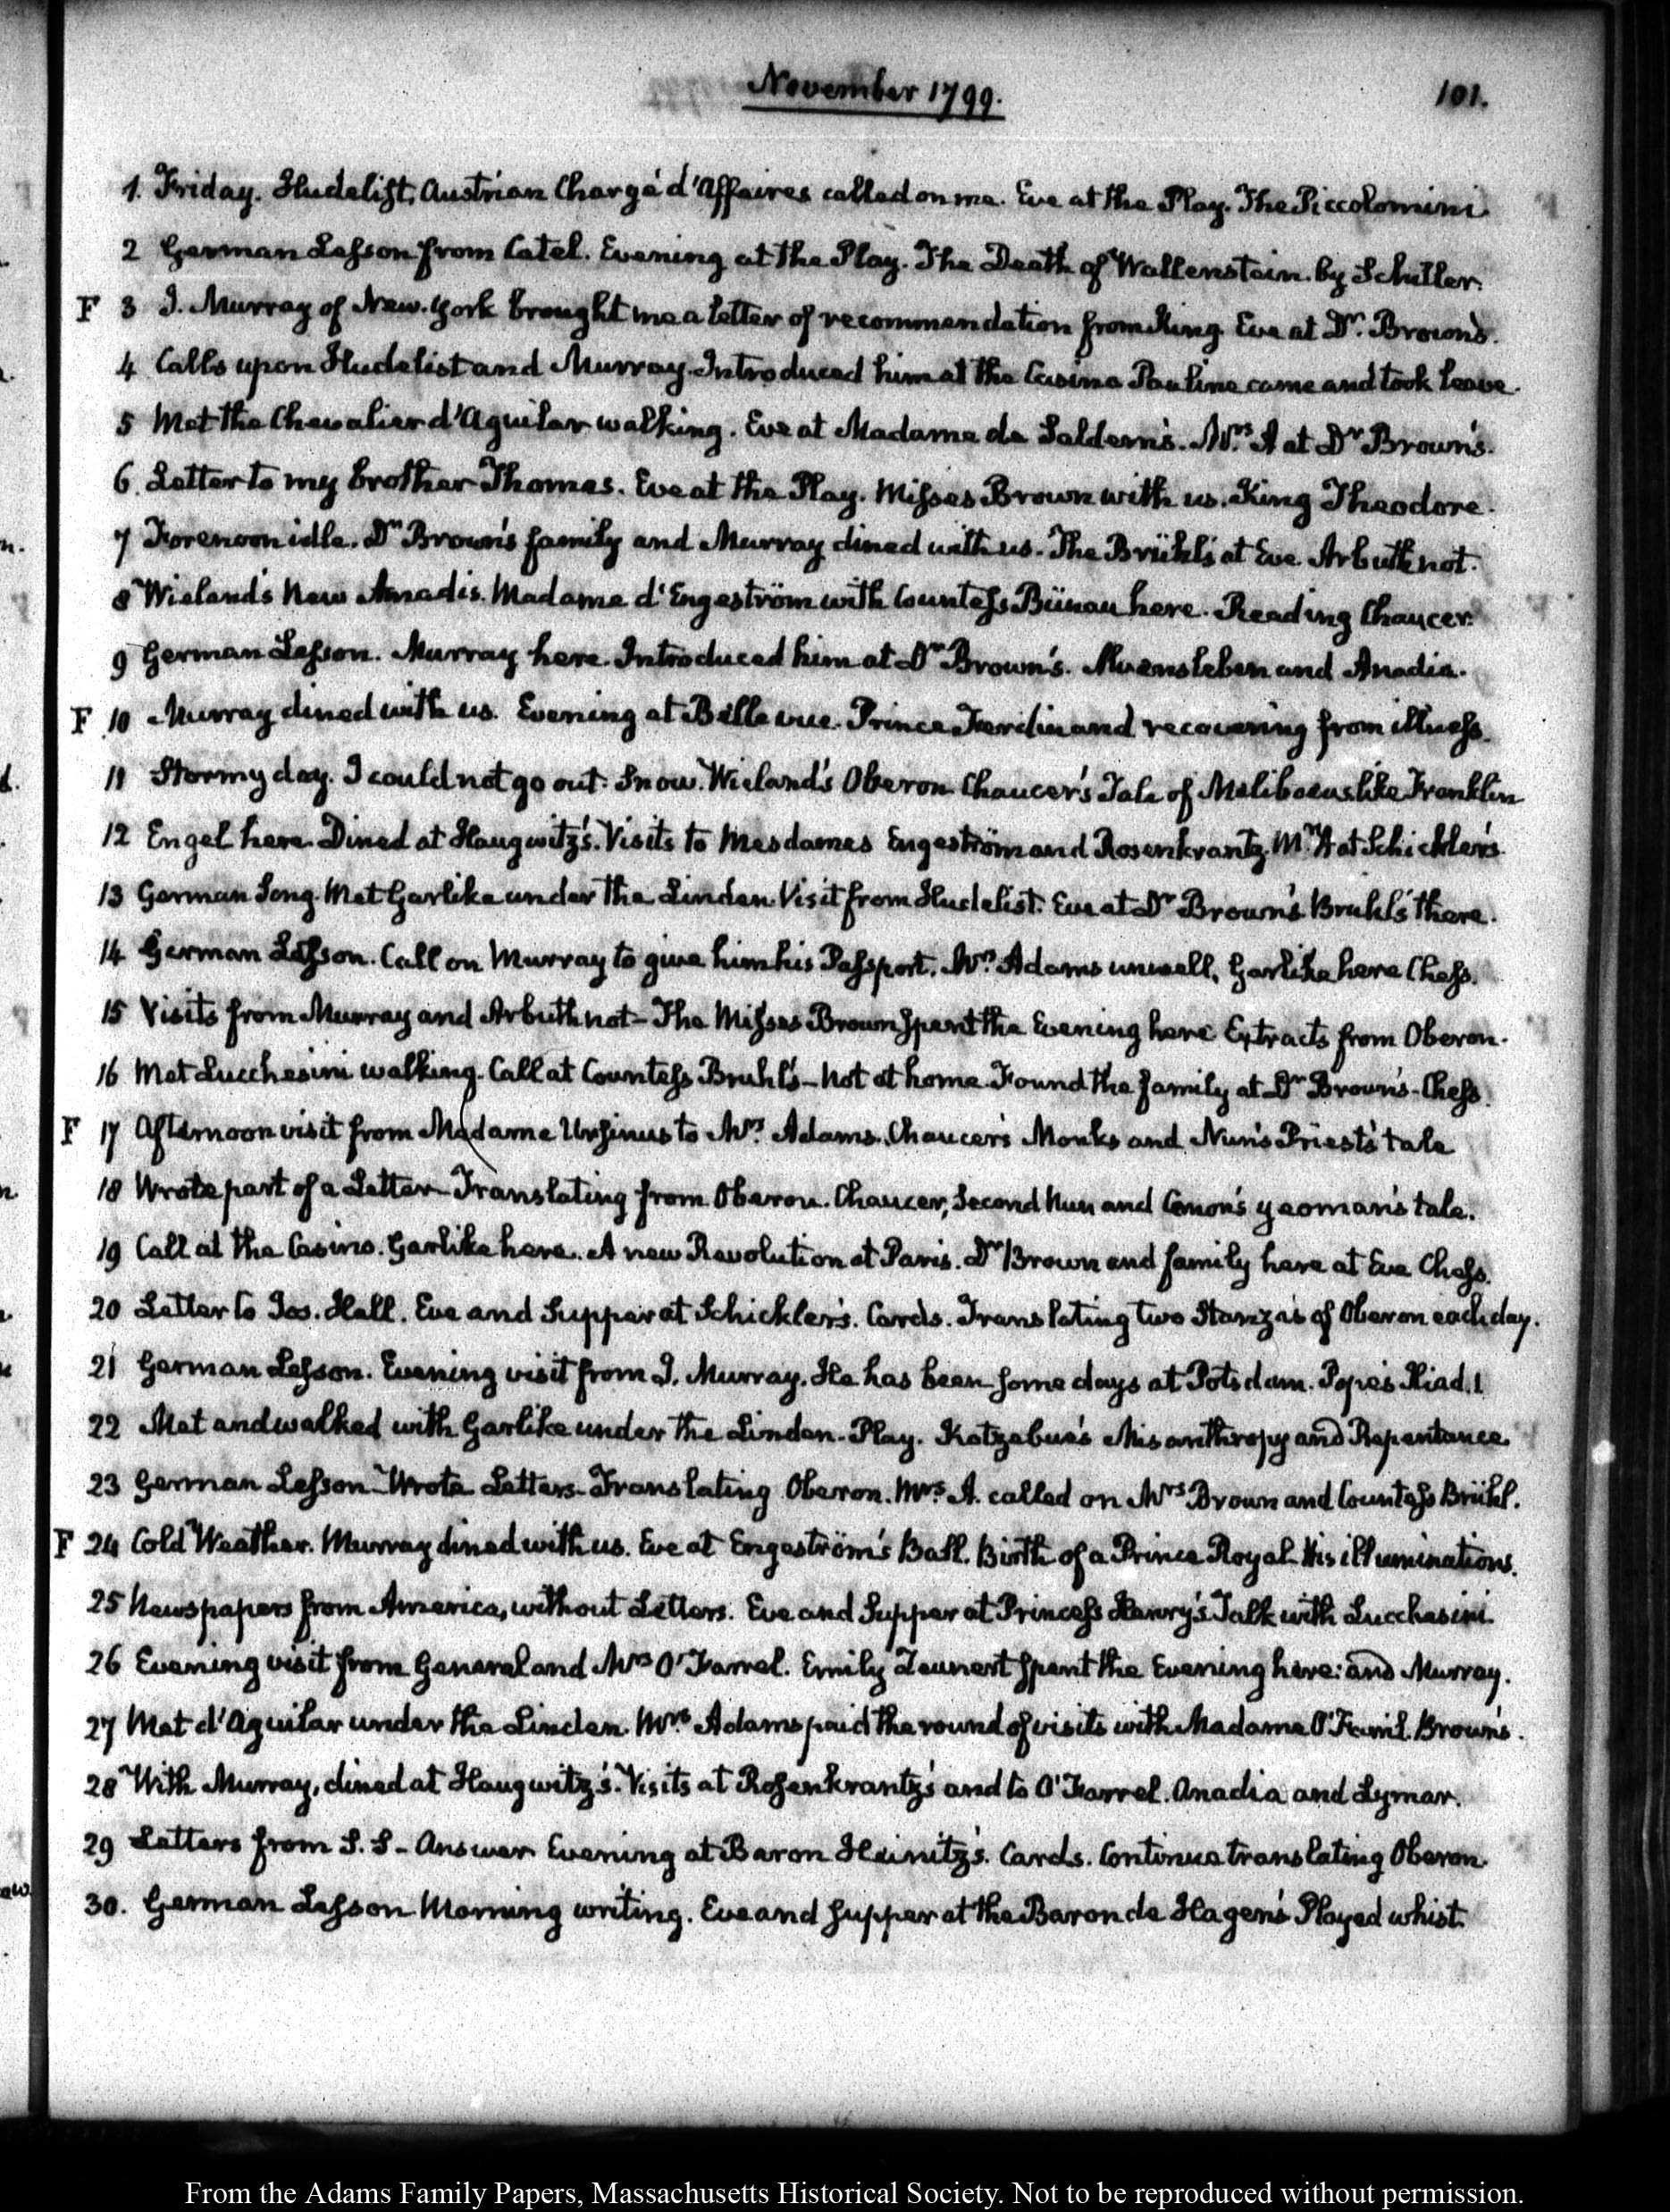 November 1799.
101.
1. Friday. Hudelist, Austrian Chargé d'Affaires called on me. Eve at the Play. The Piccolomini
2 German Lesson from Catel. Evening at the Play. The Death of Wallenstein. by Schiller.
F 3 J. Murray of New-York brought me a letter of recommendation from King. Eve at Dr. Brown's.
4 Calls upon Hudelist and Murray. Introduced him at the Casino Pauline came and took leave.
5 Met the Chevalier d'Aguilar walking. Eve at Madame de Saldern's. Mrs. A at Dr Brown's.
6. Letter to my brother Thomas. Eve at the Play. Misses Brown with us. King Theodore.
7 Forenoon idle. Dr Brown's family and Murray dined with us. The Brühls at Eve. Arbuthnot.
8 Wieland's New Amadis. Madame d'Engeström with Countess Bünau here. Reading Chaucer.
9 German Lesson. Murray here. Introduced him at Dr Brown's. Alvensleben and Anadia.
F 10 Murray dined with us. Evening at Bellevue. Prince Ferdinand recovering from illness.
11 Stormy day. I could not go out. Snow. Wieland's Oberon. Chaucer's Tale of Meliboeus like Franklin
12 Engel here. Dined at Haugwitz's. Visits to Mesdames Engeström and Rosenkrantz. Mrs A at Schickler's.
13 German Song. Met Garlike under the Linden. Visit from Hudelist. Eve at Dr Brown's. Bruhl's there.
14 German Lesson. Call on Murray to give him his Passport. Mrs. Adams unwell, Garlike here Chess.
15 Visits from Murray and Arbuthnot - The Misses Brown spent the Evening here Extracts from Oberon.
16 Met Lucchesini walking. Call at Countess Bruhl's - not at home. Found the family at Dr Brown's - Chess.
F 17 Afternoon visit from Madame Ursinus to Mrs. Adams. Chaucer's Monks and Nun's Priest's tale
18 Wrote part of a Letter - Translating from Oberon. Chaucer, Second Nun and Canon's yeoman's tale.
19 Call at the Casino. Garlike here. A new Revolution at Paris. Dr Brown and family here at Eve Chess.
20 Letter to Jos. Hall. Eve and Supper at Schickler's. Cards. Translating two Stanza's of Oberon each day.
21 German Lesson. Evening visit from J. Murray. He has been some days at Potsdam. Pope's Iliad. 1
22 Met and walked with Garlike under the Linden. Play. Kotzebue's Misanthropy and Repentance.
23 German Lesson - Wrote Letters - Translating Oberon. Mrs. A. called on Mrs Brown and Countess Brühl.
F 24 Cold Weather. Murray dined with us. Eve at Engeström's Ball. Birth of a Prince Royal - His illuminations.
25 Newspapers from America, without Letters. Eve and Supper at Princess Henry's. Talk with Lucchesini.
26 Evening visit from General and Mrs O'Farrel. Emily spent the Evening here: and Murray.
27 Met d'Aguilar under the Linden. Mrs. Adams paid the round of visits with Madame O'Farril. Brown's.
28 With Murray, dined at Haugwitz's. Visits at Rosenkrantz's and to O'Farrel. Anadia and Lymar.
29 Letters from S. S - Answer Evening at Baron Heinitz's. Cards. Continue translating Oberon.
30. German Lesson Morning writing. Eve and supper at the Baron de Hagen's Played whist.
From the Adams Family Papers, Massachusetts Historical Society. Not to be reproduced without permission.